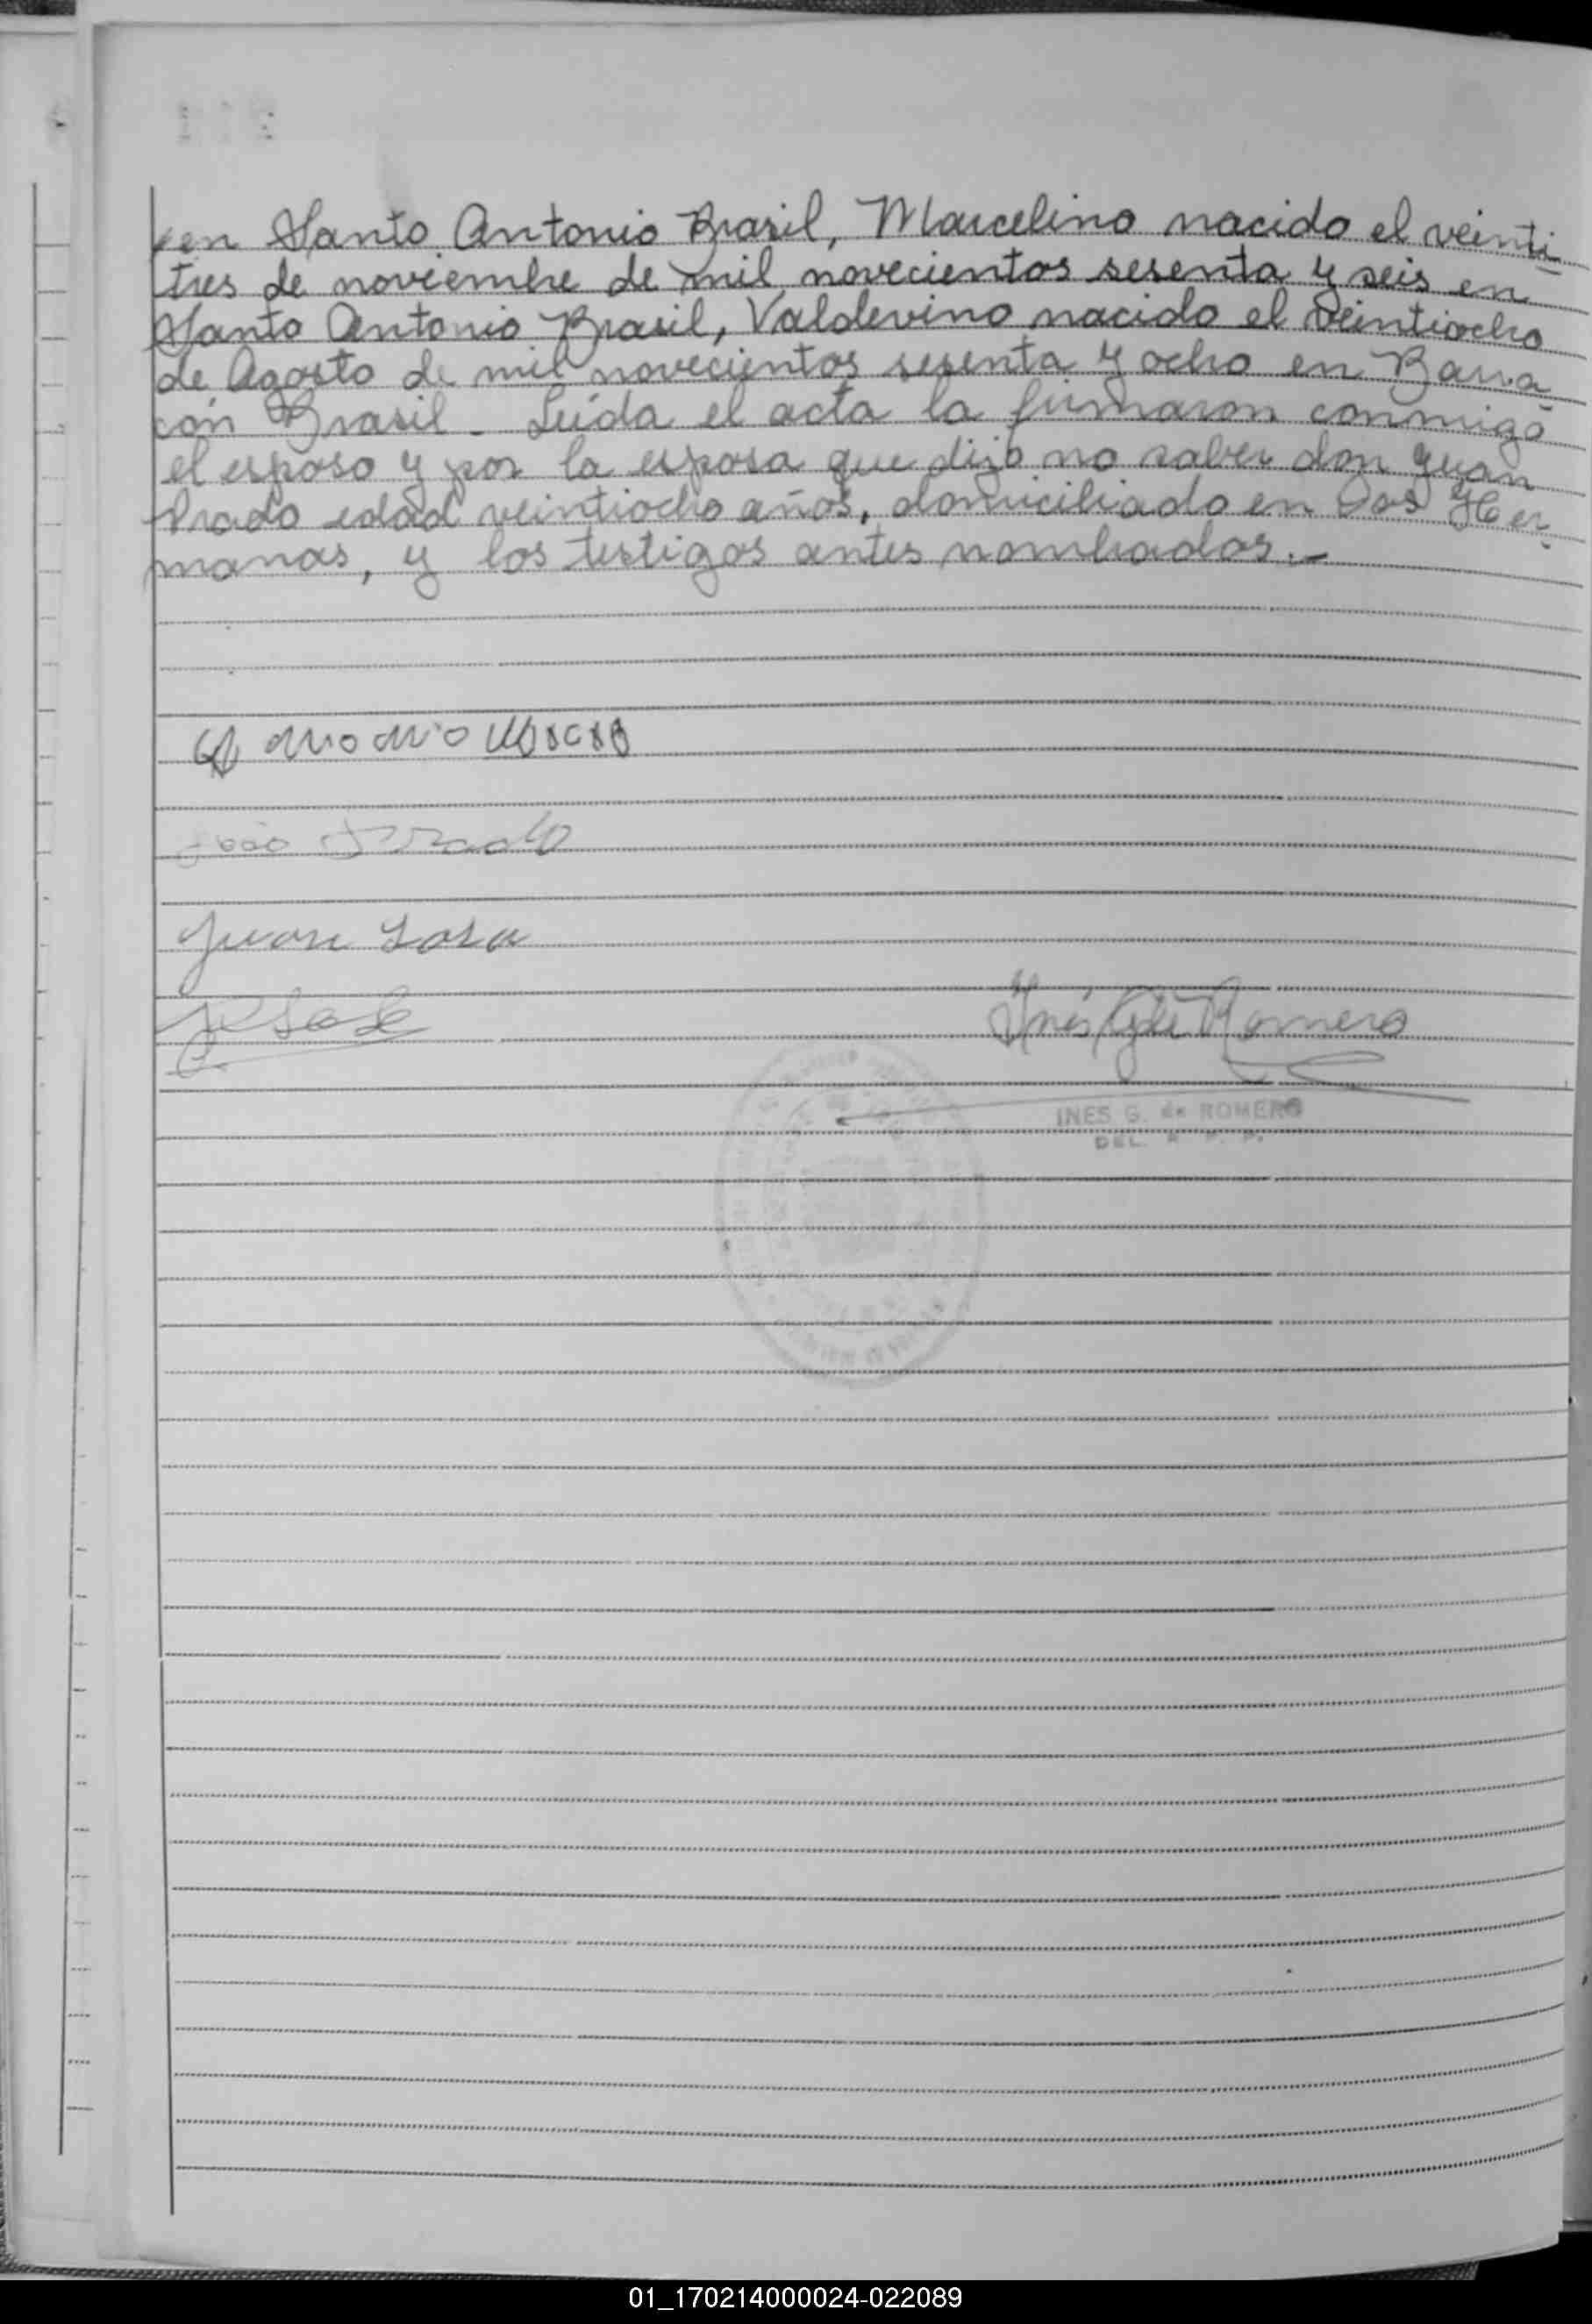 en Santo Antonio Brasil, Marcelino nacido el veinti
tres de noviembre de mil novecientos sesenta y seis en
Santo Antonio Brasil, Valdevino nacido el veintiocho
de Agosto de mil novecientos sesenta y ocho en Barra
cón Brasil - Leída el acta la firmaron conmigo
el esposo y por la esposa que dijo no saber don Juan
Prado edad veintiocho años, domiciliado en Dos Her
manas, y los testigos antes nombrados.-
João Prado
Juan Sosa
Inés Romero
INES G. de ROMERO
DEL. R. P. P.
01_170214000024-022089